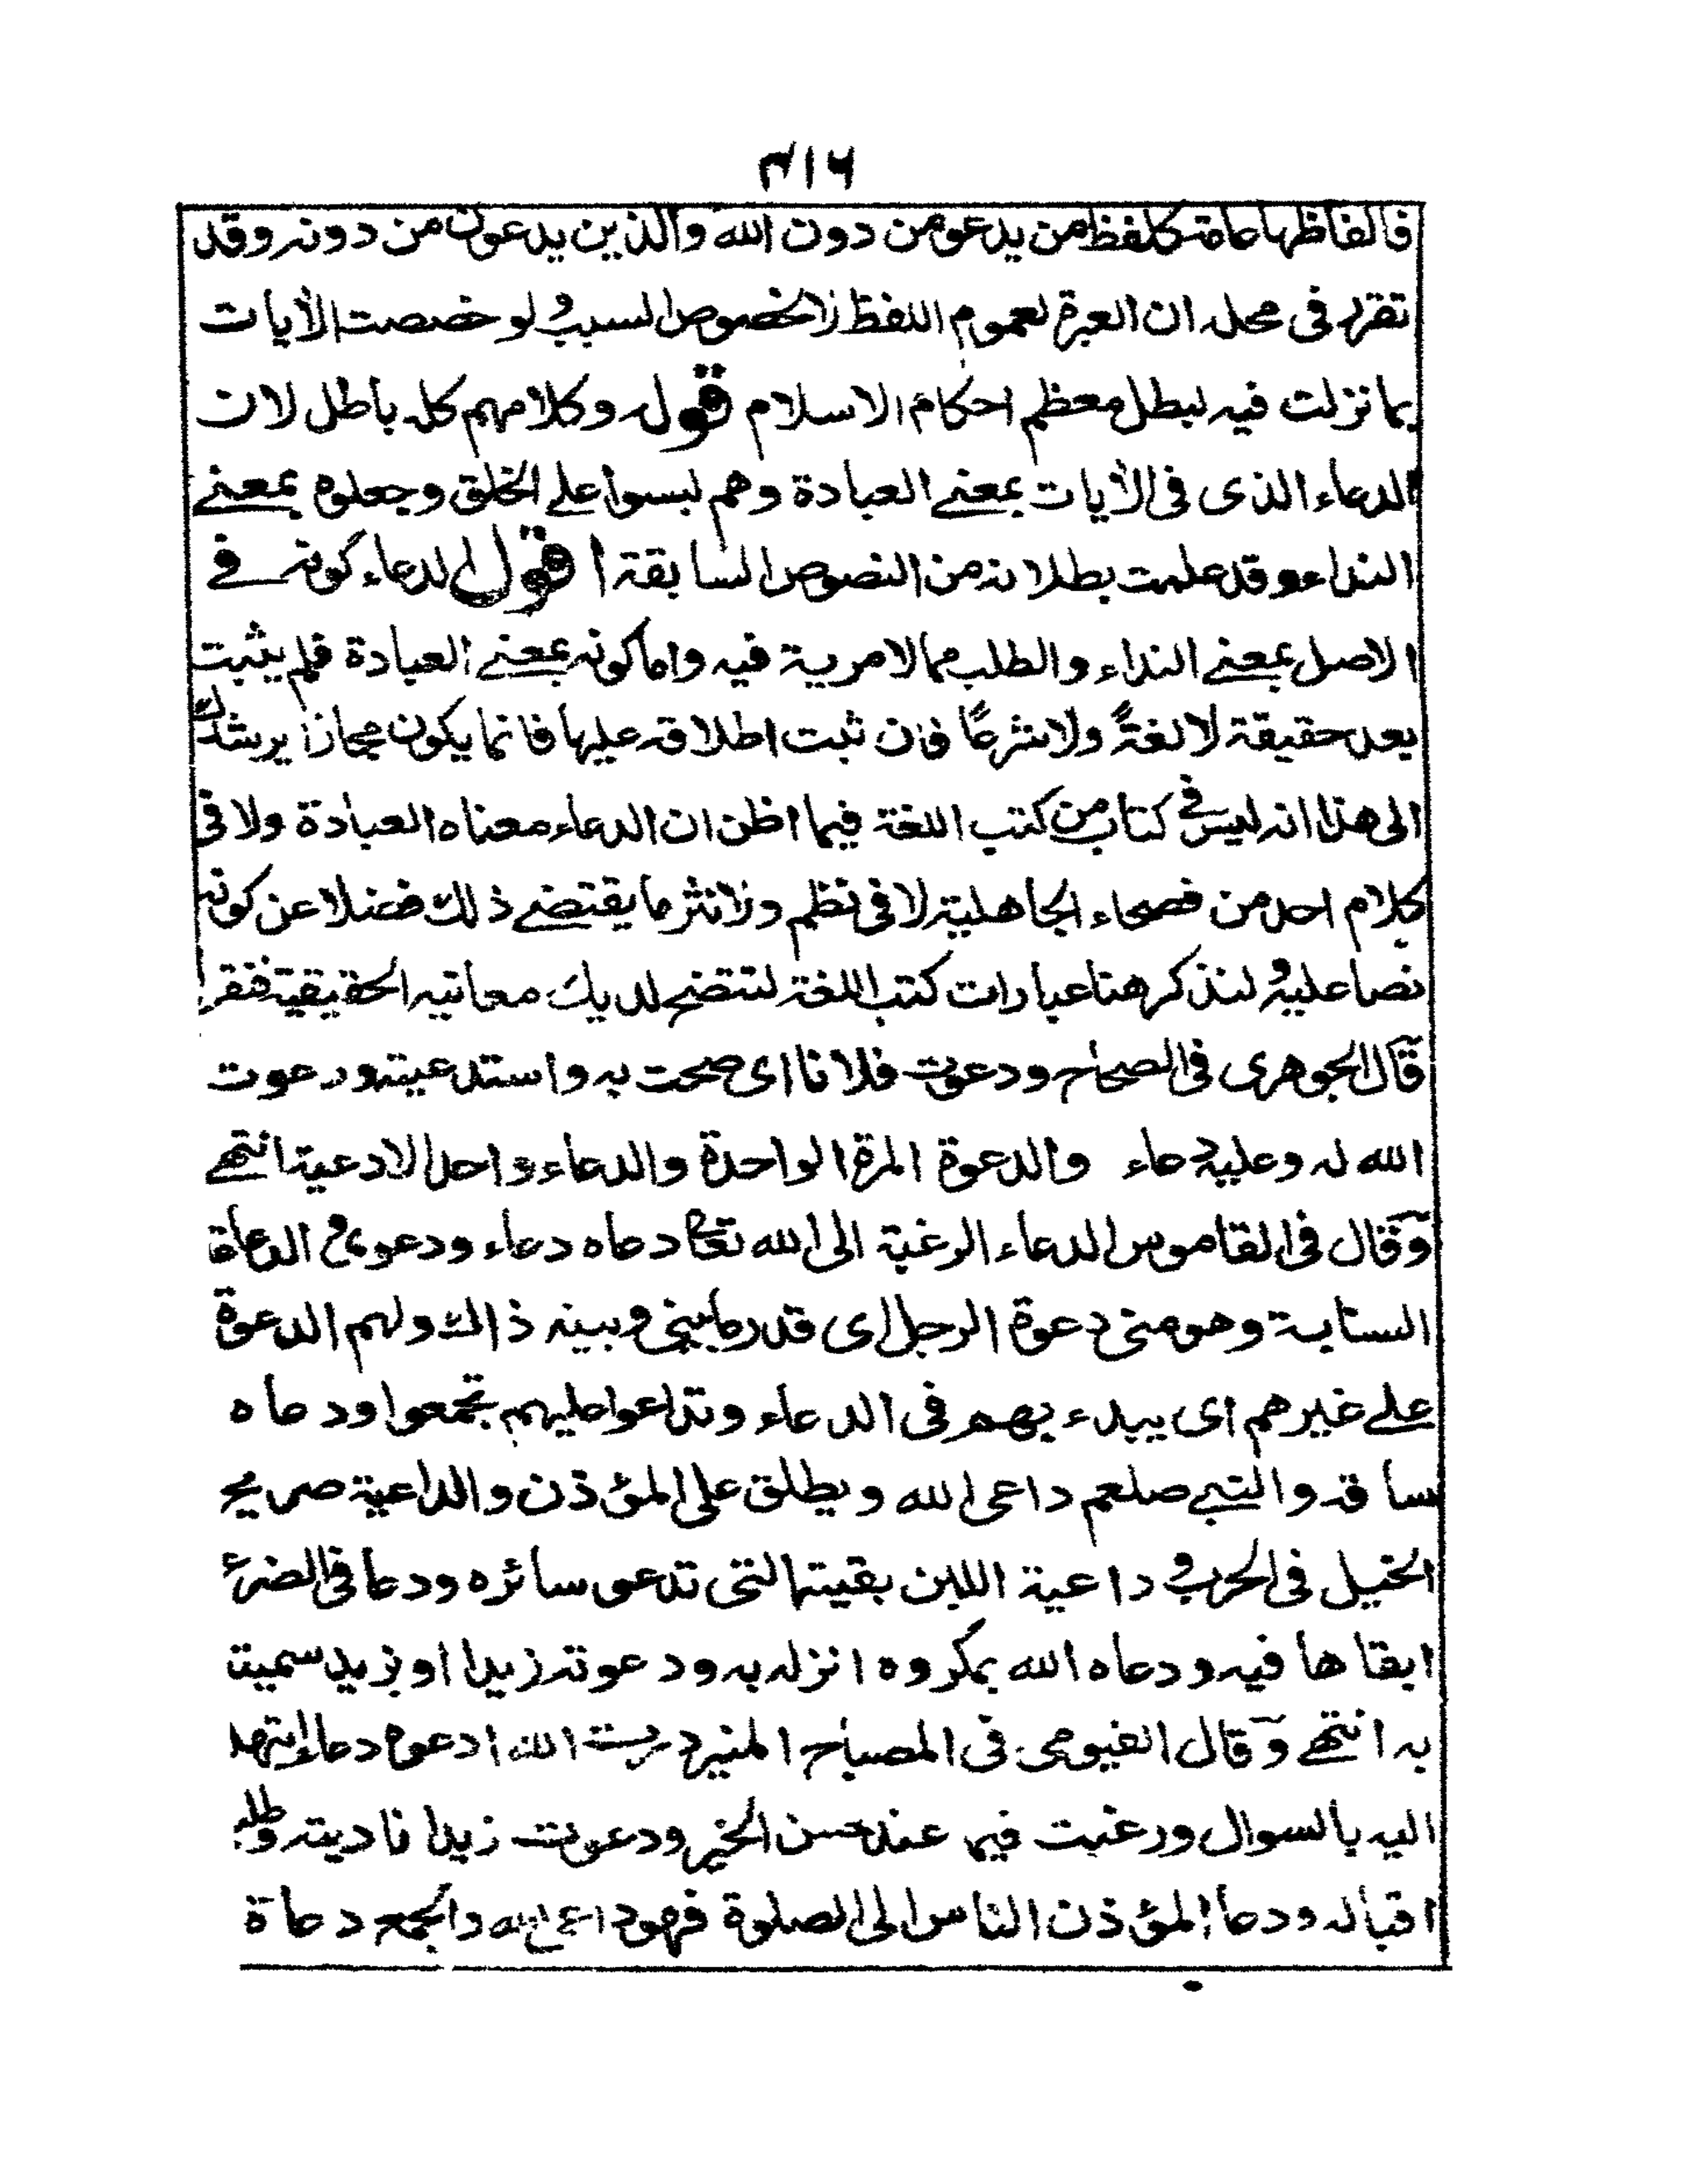 ٤١٦
فالفاظها عامة كلفظ من يدعو من دون الله والذين يدعون من دونه وقد
تقرر فى محله ان العبرة لعموم اللفظ لا لخصوص السبب ولو خصصت الآيات
بما نزلت فيه لبطل معظم احكام الاسلام قوله وكلامهم كله باطل لان
الدعاء الذى فى الآيات بمعنے العبادة وهم لبسوا علے الخلق وجعلوه بمعنے
النداء وقد علمت بطلانه من النصوص السابقة اقول الدعاء كونه فے
الاصل بمعنے النداء والطلب مما لا مرية فيه واما كونه بمعنے العبادة فلم يثبت
بعد حقيقة لا لغةً ولا شرعًا فان ثبت اطلاقه عليها فانما يكون مجازا يرشدك
الى هذا انه ليس فے كتاب من كتب اللغة فيما اظن ان الدعاء معناه العبادة ولا فى
كلام احد من فصحاء الجاهلية لا فى نظم ولا نثر ما يقتضے ذلك فضلا عن كونه
نصا عليه ولنذكر هنا عبارات كتب اللغة لتتضح لديك معانيه الحقيقية فنقول
قال الجوهرى فى الصحاح ودعوت فلانا اى صحت به واستدعيته ودعوت
الله له وعليه دعاء والدعوة المرة الواحدة والدعاء واحد الادعية انتهے
وقال فى القاموس الدعاء الرغبة الى الله تعالى دعاه دعاء ودعوى والدعاة
السبابة وهو منى دعوة الرجل اى قدر ما بينى وبينه ذاك ولهم الدعوة
علے غيرهم اى يبدء بهم فى الدعاء وتداعوا عليهم تجمعوا ودعاه
ساقه والنبے صلعم داعى الله ويطلق على المؤذن والداعية صريخ
الخيل فى الحرب و داعية اللبن بقيته التى تدعى سائره ودعا فى الضرع
ابقاها فيه ودعاه الله بمكروه انزله به ودعوته زيدا او بزيد سميته
به انتهے وقال الفيومى فى المصباح المنير دعوت الله ادعوه دعاء ابتهلت
اليه بالسوال ورغبت فيما عنده من الخير ودعوت زيدا ناديته وطلبت
اقباله ودعا المؤذن الناس الى الصلوة فهو داعى الله والجمع دعاة